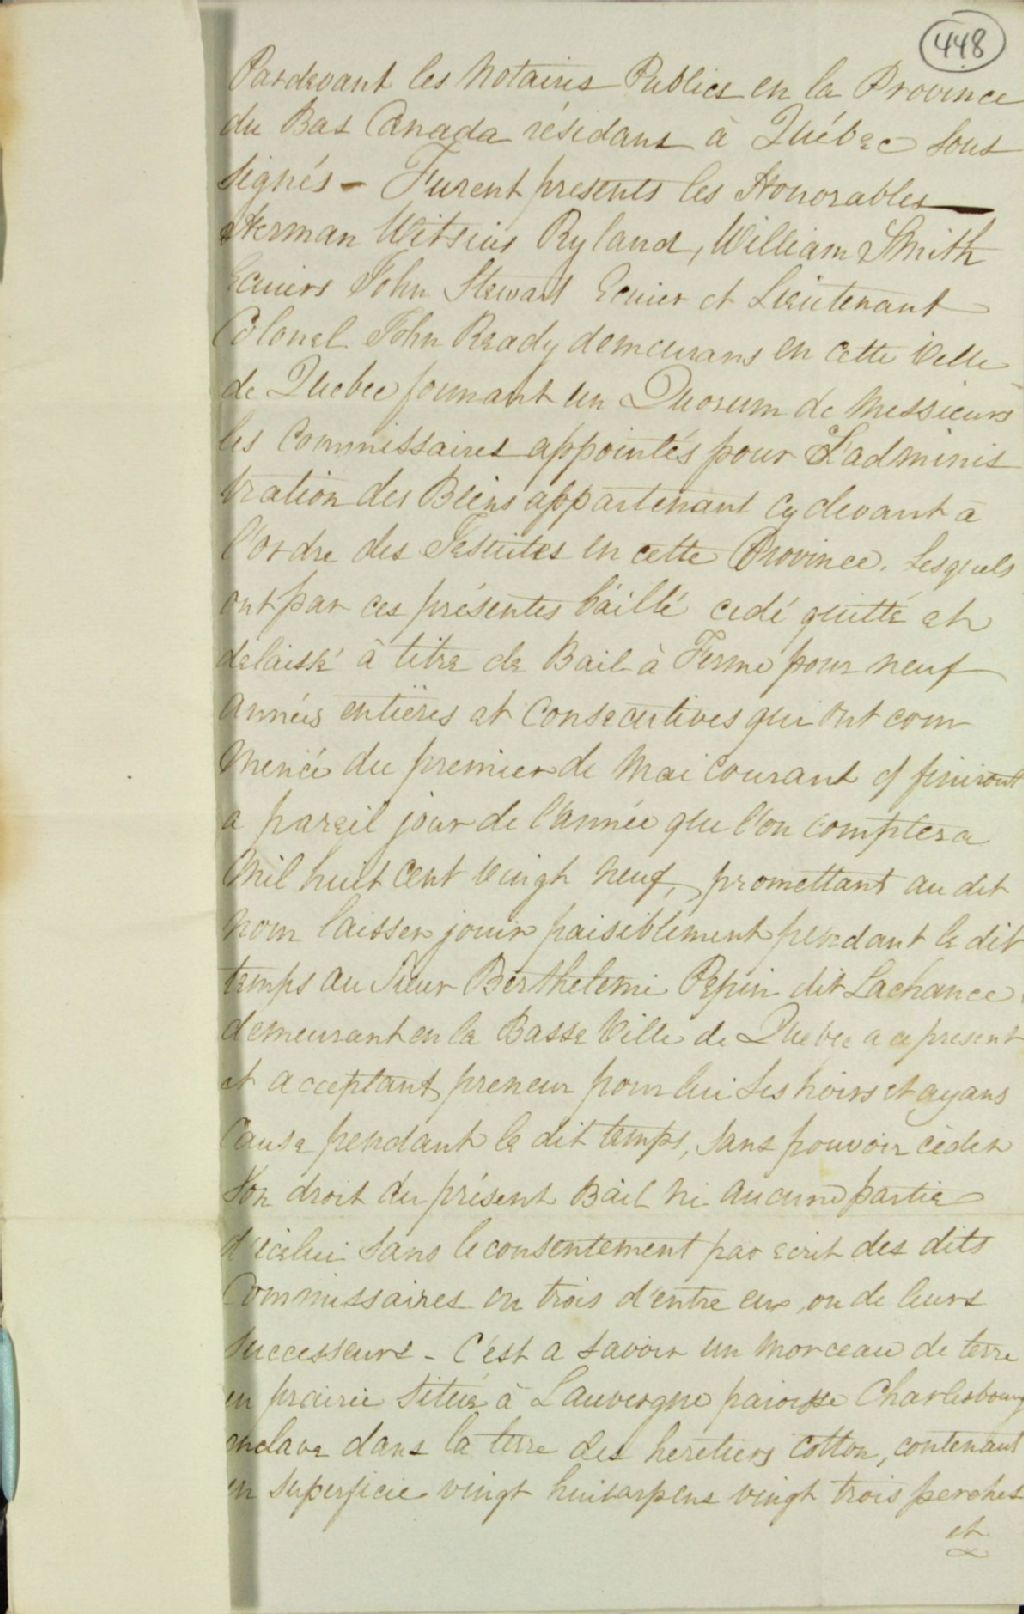 448
Pardevant les Notaires Publics en la Province
du Bas Canada résidans à Québec Sous
signés - Furent présents les Honorables
Herman Witsius Ryland, William Smith
Ecuiers John Stewart Ecuier et Lieutenant
Colonel John Ready demeurans en cette Ville
de Quebec formant un Quorum de Messieurs
les Commissaires appointés pour L'adminis
tration des Biens appartenant cy devant à
l'ordre des Jesuites en cette Province. Lesquels
ont par ces présentes baillé cedé quitté et
delaissé à titre de Bail à Ferme pour neuf
Années entières et Consecutives qui ont com
mencé du premier de Mai courant & finiront
a pareil jour de l'année que l'on comptera
Mil huit Cent Vingt Neuf, promettant au dit
nom laisser jouir paisiblement pendant le dit
temps au Sieur Berthelemi Pepin dit Lachance
demeurant en la Basse Ville de Quebec a ce present
et acceptant preneur pour lui Ses hoirs et ayans
Cause pendant le dit temps, Sans pouvoir cèder
Son droit du présent Bail ni aucune partie
d'icelui Sans le consentement par ecrit des dits
Commissaires ou trois d'entre eux, ou de leurs
Successeurs - C'est a savoir un morceau de terre
en prairie Situé à Lauvergne paroisse Charlesbourg
enclave dans la terre des heretiers Cotton, contenant
en Superficie vingt huit arpens vingt trois perches
et